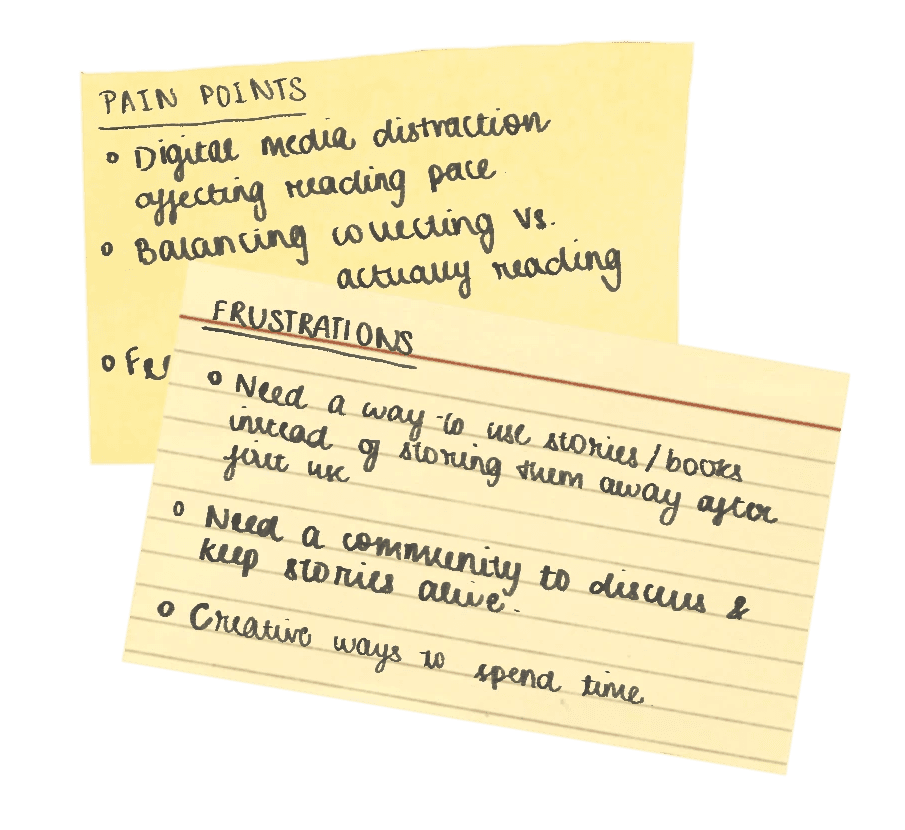 PAIN POINTS
o Digital media distraction
affecting reading pace
o Balancing collecting vs.
actually reading
o
FRUSTRATIONS
o Need a way to use stories/books
instead of storing them away after
first use
o Need a community to discuss &
keep stories alive.
o Creative ways to spend time